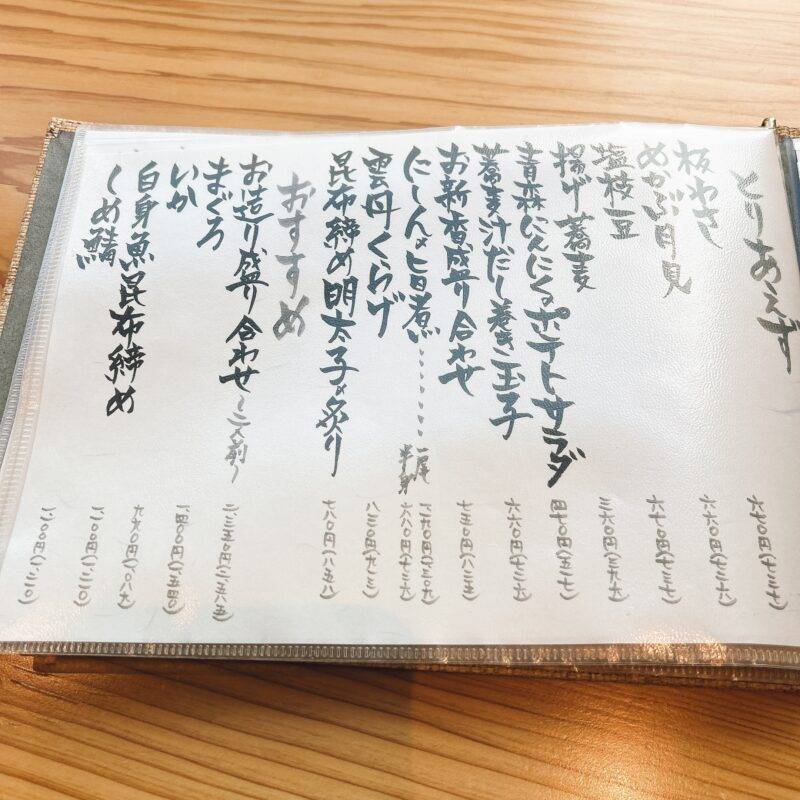 とりあえず
板わさ 六七〇円(七三七)
めかぶ月見 六六〇円(七二六)
塩枝豆 六七〇円(七三七)
揚げ蕎麦 三六〇円(三九六)
青森にんにくのポテトサラダ 四七〇円(五一七)
蕎麦汁だし巻き玉子 六六〇円(七二六)
お新香盛り合わせ 七五〇円(八二五)
にしんの旨煮………一尾
半身
雲丹くらげ 八三〇円(九一三)
昆布締め明太子の炙り 七八〇円(八五八)
おすすめ
お造り盛り合わせ〜二人前〜 二、三五〇円(二、五八五)
まぐろ 一、四〇〇円(一、五四〇)
いか 九九〇円(一、〇八九)
白身魚昆布締め 一、二〇〇円(一、三二〇)
しめ鯖 一、二〇〇円(一、三二〇)